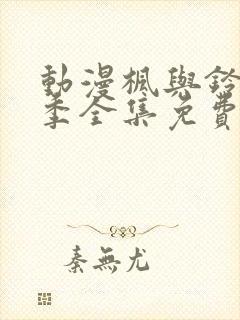 動漫楓與鈴
季全集免費
秦無尤